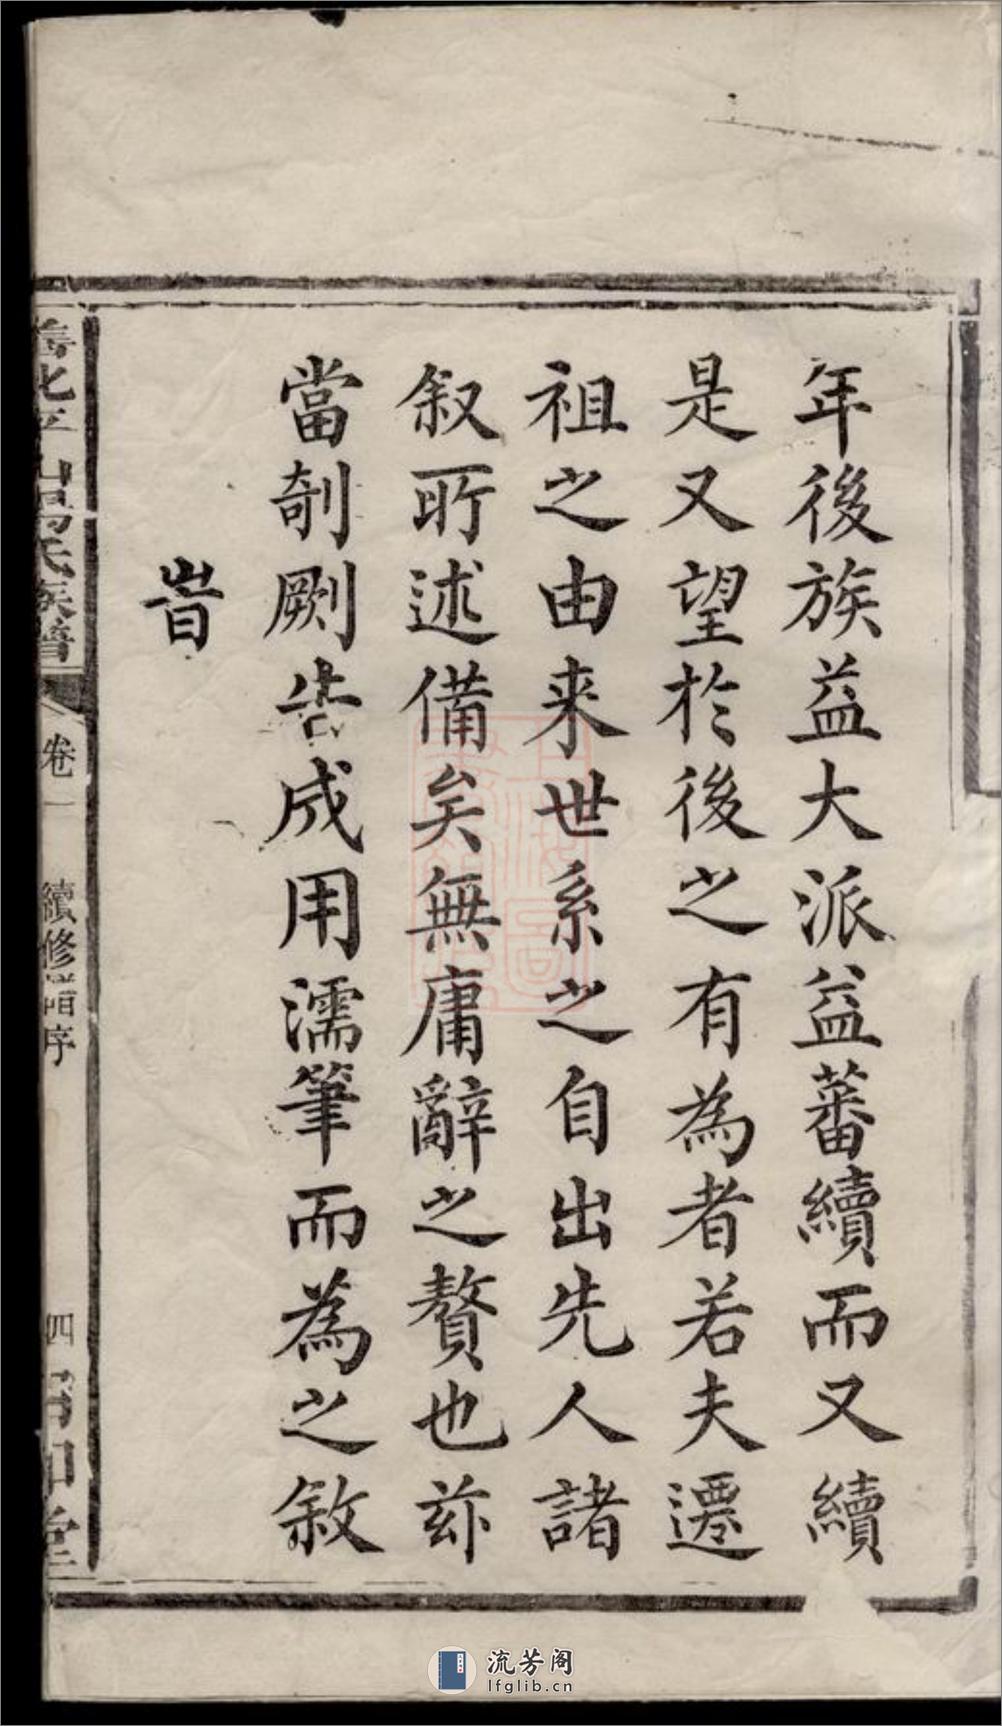 年後族益大派益蕃續而又續
是又望於後之有為者若夫遷
祖之由来世系之自出先人諸
叙所述備矣無庸辭之贅也茲
當剞劂告成用濡筆而為之敘
旹
善化平山馮氏族譜
卷一
續修譜序
四
堂
流芳阁
lfglib.cn